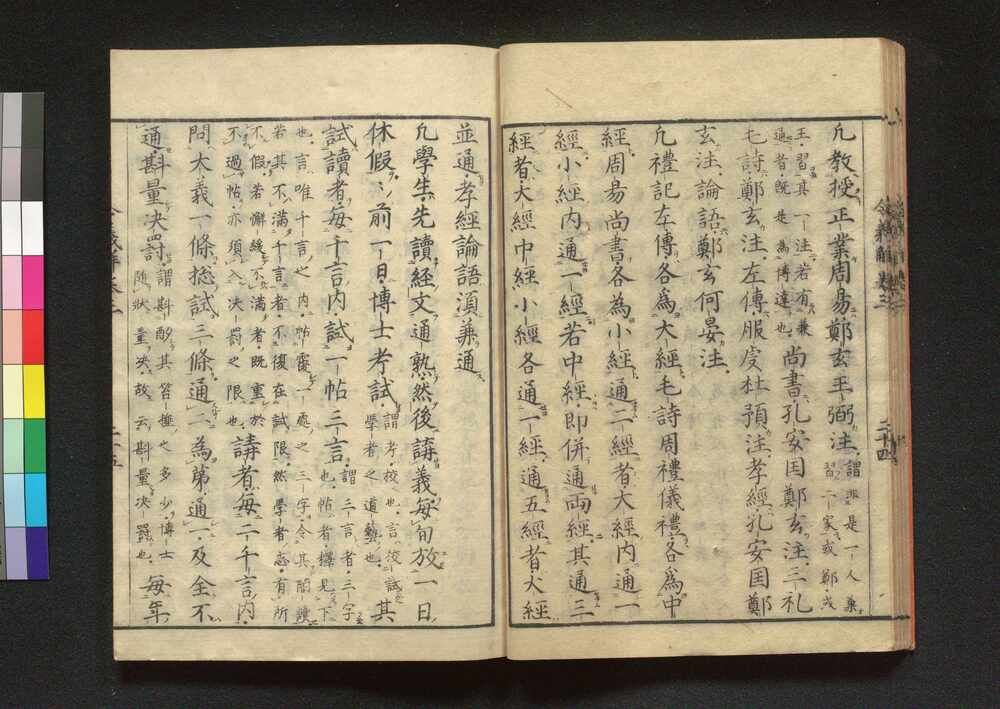 凡教授正業周易鄭玄王弼注
謂非是一人兼
習二家或鄭或
王習其一注若有兼
通者既是為博達也
尚書孔安国鄭玄注三礼
毛詩鄭玄注左傳服虔杜預注孝經孔安国鄭
玄注論語鄭玄何晏注
凡禮記左傳各為大經毛詩周禮儀禮各為中
經周易尚書各為小經通二經者大經内通一
經小經内通一經若中經即併通両經其通三
經者大經中經小經各通一經通五經者大經
令義解卷三
二十四
並通孝經論語湏兼通
凡學生先讀經文通熟然後講義毎旬放一日
休假〻前一日博士考試
謂考校也言校試
學者之道藝也
其
試讀者毎千言内試一帖三言
謂三言者三字
也帖者見下
也言唯千言之内帖覆一處之三字令其闇讀
若其不滿千言者不復在試限然學者志有所
不假若懈緩不滿者既重於
不過帖亦須入决罸之限也
講者毎二千言内
問大義一條惣試三條通二為第通一及全不
通斟量决罸
謂斟酌其笞捶之多少博士
随状量决故云斟量决罸也
毎年
二十五